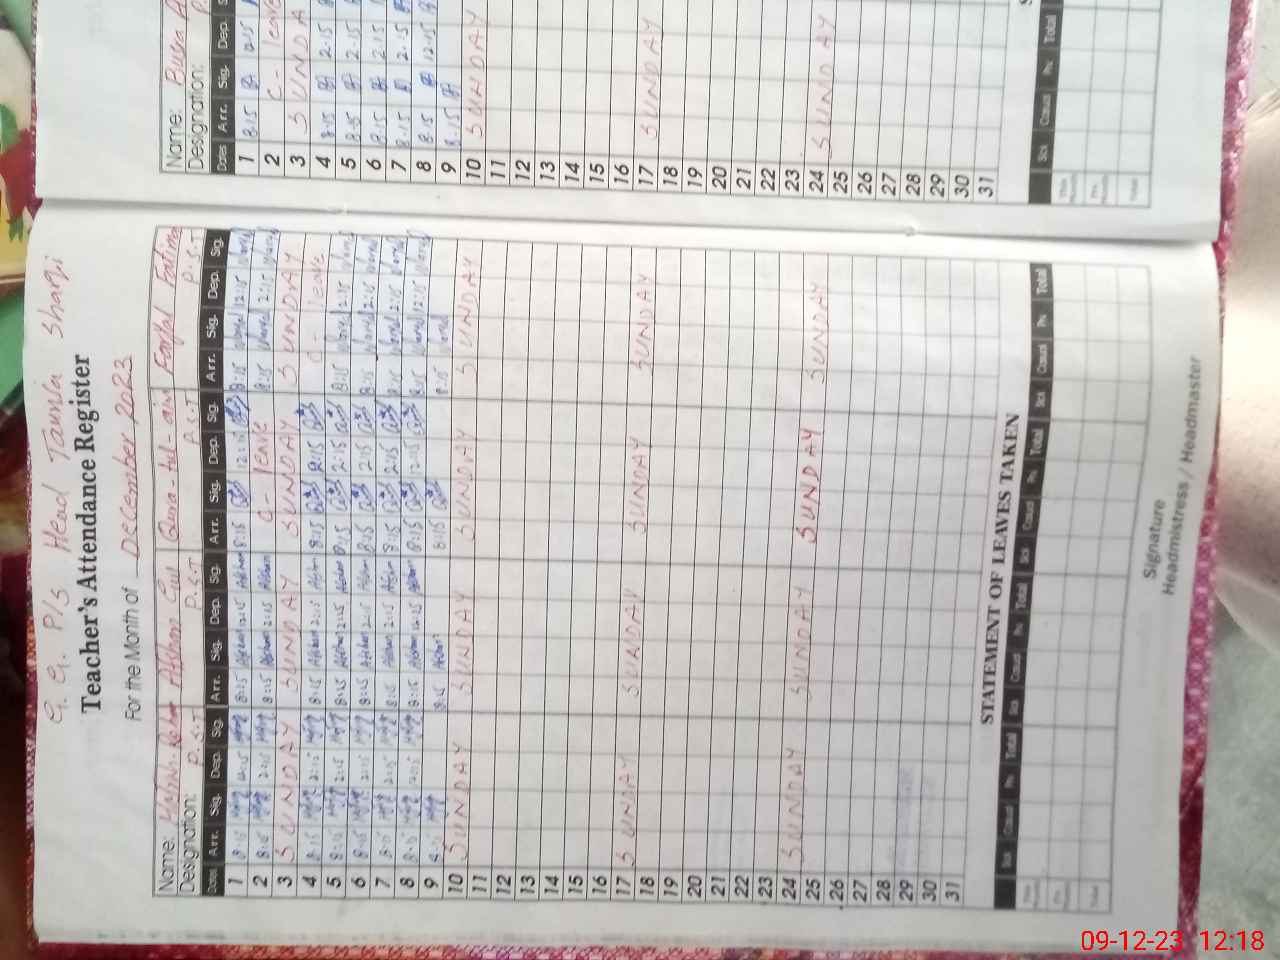 G. G. P/S Head Taunja Sharji
Teacher's Attendance Register
For the Month of December 2023
Name: Afshan Gul Qura-tul-ain Faryal Fatima
Designation: P.S.T P.S.T P.S.T P.S.T
Dates Arr. Sig. Dep. Sig. Arr. Sig. Dep. Sig. Arr. Sig. Dep. Sig. Arr. Sig. Dep. Sig.
1 8:15 12:15 8:15 Afshan 12:15 Afshan 8:15 12:15 8:15 12:15
2 8:15 2:15 8:15 Afshan 2:15 Afshan C- leave 8:15 2:15
3 SUNDAY SUNDAY SUNDAY SUNDAY
4 8:15 2:15 8:15 Afshan 2:15 Afshan 8:15 2:15 C- leave
5 8:15 2:15 8:15 Afshan 2:15 Afshan 8:15 2:15 8:15 2:15
6 8:15 2:15 8:15 Afshan 2:15 Afshan 8:15 2:15 8:15 2:15
7 8:15 2:15 8:15 Afshan 2:15 Afshan 8:15 2:15 8:15 2:15
8 8:15 12:15 8:15 Afshan 12:15 Afshan 8:15 12:15 8:15 12:15
9 8:15 8:15 Afshan 8:15 8:15
10 SUNDAY SUNDAY SUNDAY SUNDAY
11
12
13
14
15
16
17 SUNDAY SUNDAY SUNDAY SUNDAY
18
19
20
21
22
23
24 SUNDAY SUNDAY SUNDAY SUNDAY
25
26
27
28
29
30
31
STATEMENT OF LEAVES TAKEN
Sick Casual Prv Total Sick Casual Prv Total Sick Casual Prv Total Sick Casual Prv Total
This Month
Prv. Month
Total
Signature
Headmistress / Headmaster
Name: Bushra
Designation:
Dates Arr. Sig. Dep.
1 8:15 12:15
2 C- leave
3 SUNDA
4 8:15 2:15
5 8:15 2:15
6 8:15 2:15
7 8:15 2:15
8 8:15 12:15
9 8:15
10 SUNDAY
11
12
13
14
15
16
17 SUNDAY
18
19
20
21
22
23
24 SUNDAY
25
26
27
28
29
30
31
Sick Casual Prv Total
This Month
Prv. Month
Total
09-12-23 12:18